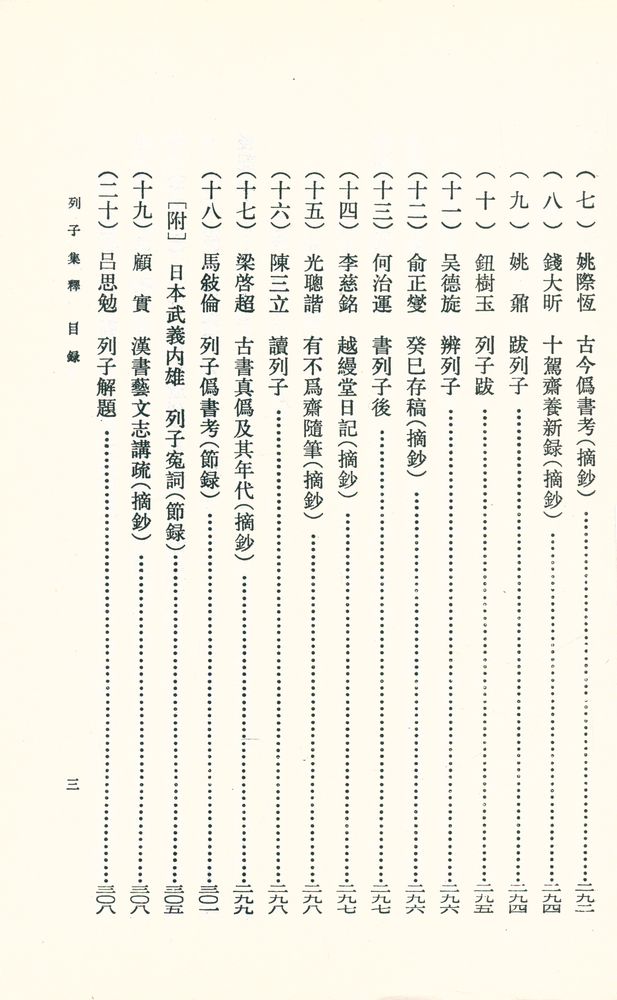 （七）　姚際恆　古今僞書考（摘鈔）……二九二
（八）　錢大昕　十駕齋養新録（摘鈔）……二九四
（九）　姚　鼐　跋列子……二九四
（十）　鈕樹玉　列子跋……二九五
（十一）　吴德旋　辨列子……二九六
（十二）　俞正燮　癸巳存稿（摘鈔）……二九六
（十三）　何治運　書列子後……二九七
（十四）　李慈銘　越縵堂日記（摘鈔）……二九七
（十五）　光聰諧　有不爲齋隨筆（摘鈔）……二九八
（十六）　陳三立　讀列子……二九八
（十七）　梁啓超　古書真僞及其年代（摘鈔）……二九九
（十八）　馬敍倫　列子僞書考（節録）……三〇一
［附］　日本武義内雄　列子冤詞（節録）……三〇五
（十九）　顧　實　漢書藝文志講疏（摘鈔）……三〇八
（二十）　吕思勉　列子解題……三〇八
列子集釋　目録　三